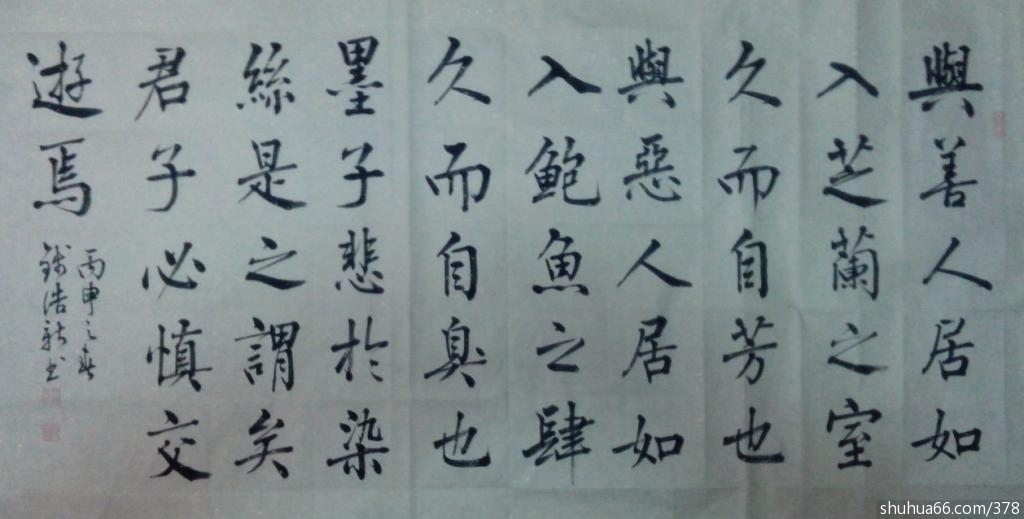 與善人居如
入芝蘭之室
久而自芳也
與惡人居如
入鮑魚之肆
久而自臭也
墨子悲於染
絲是之謂矣
君子必慎交
遊焉
丙申之春
錢浩新书
shuhua66.com/378